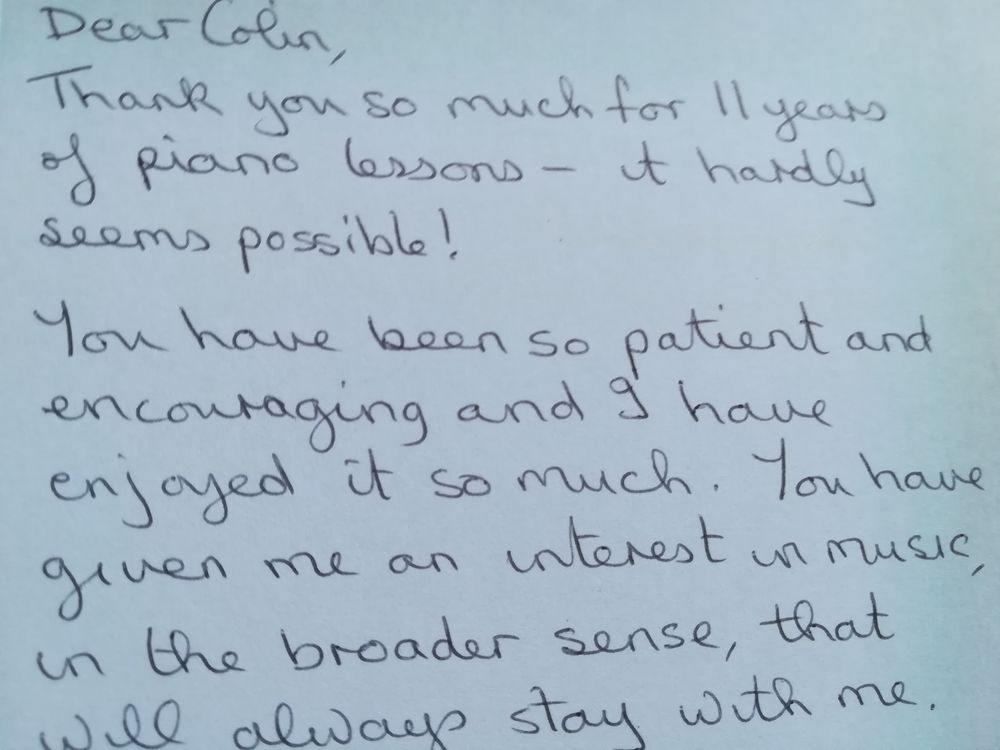 Dear Colin,
Thank you so much for 11 years
of piano lessons – it hardly
seems possible!
You have been so patient and
encouraging and I have
enjoyed it so much. You have
given me an interest in music,
in the broader sense, that
will always stay with me.